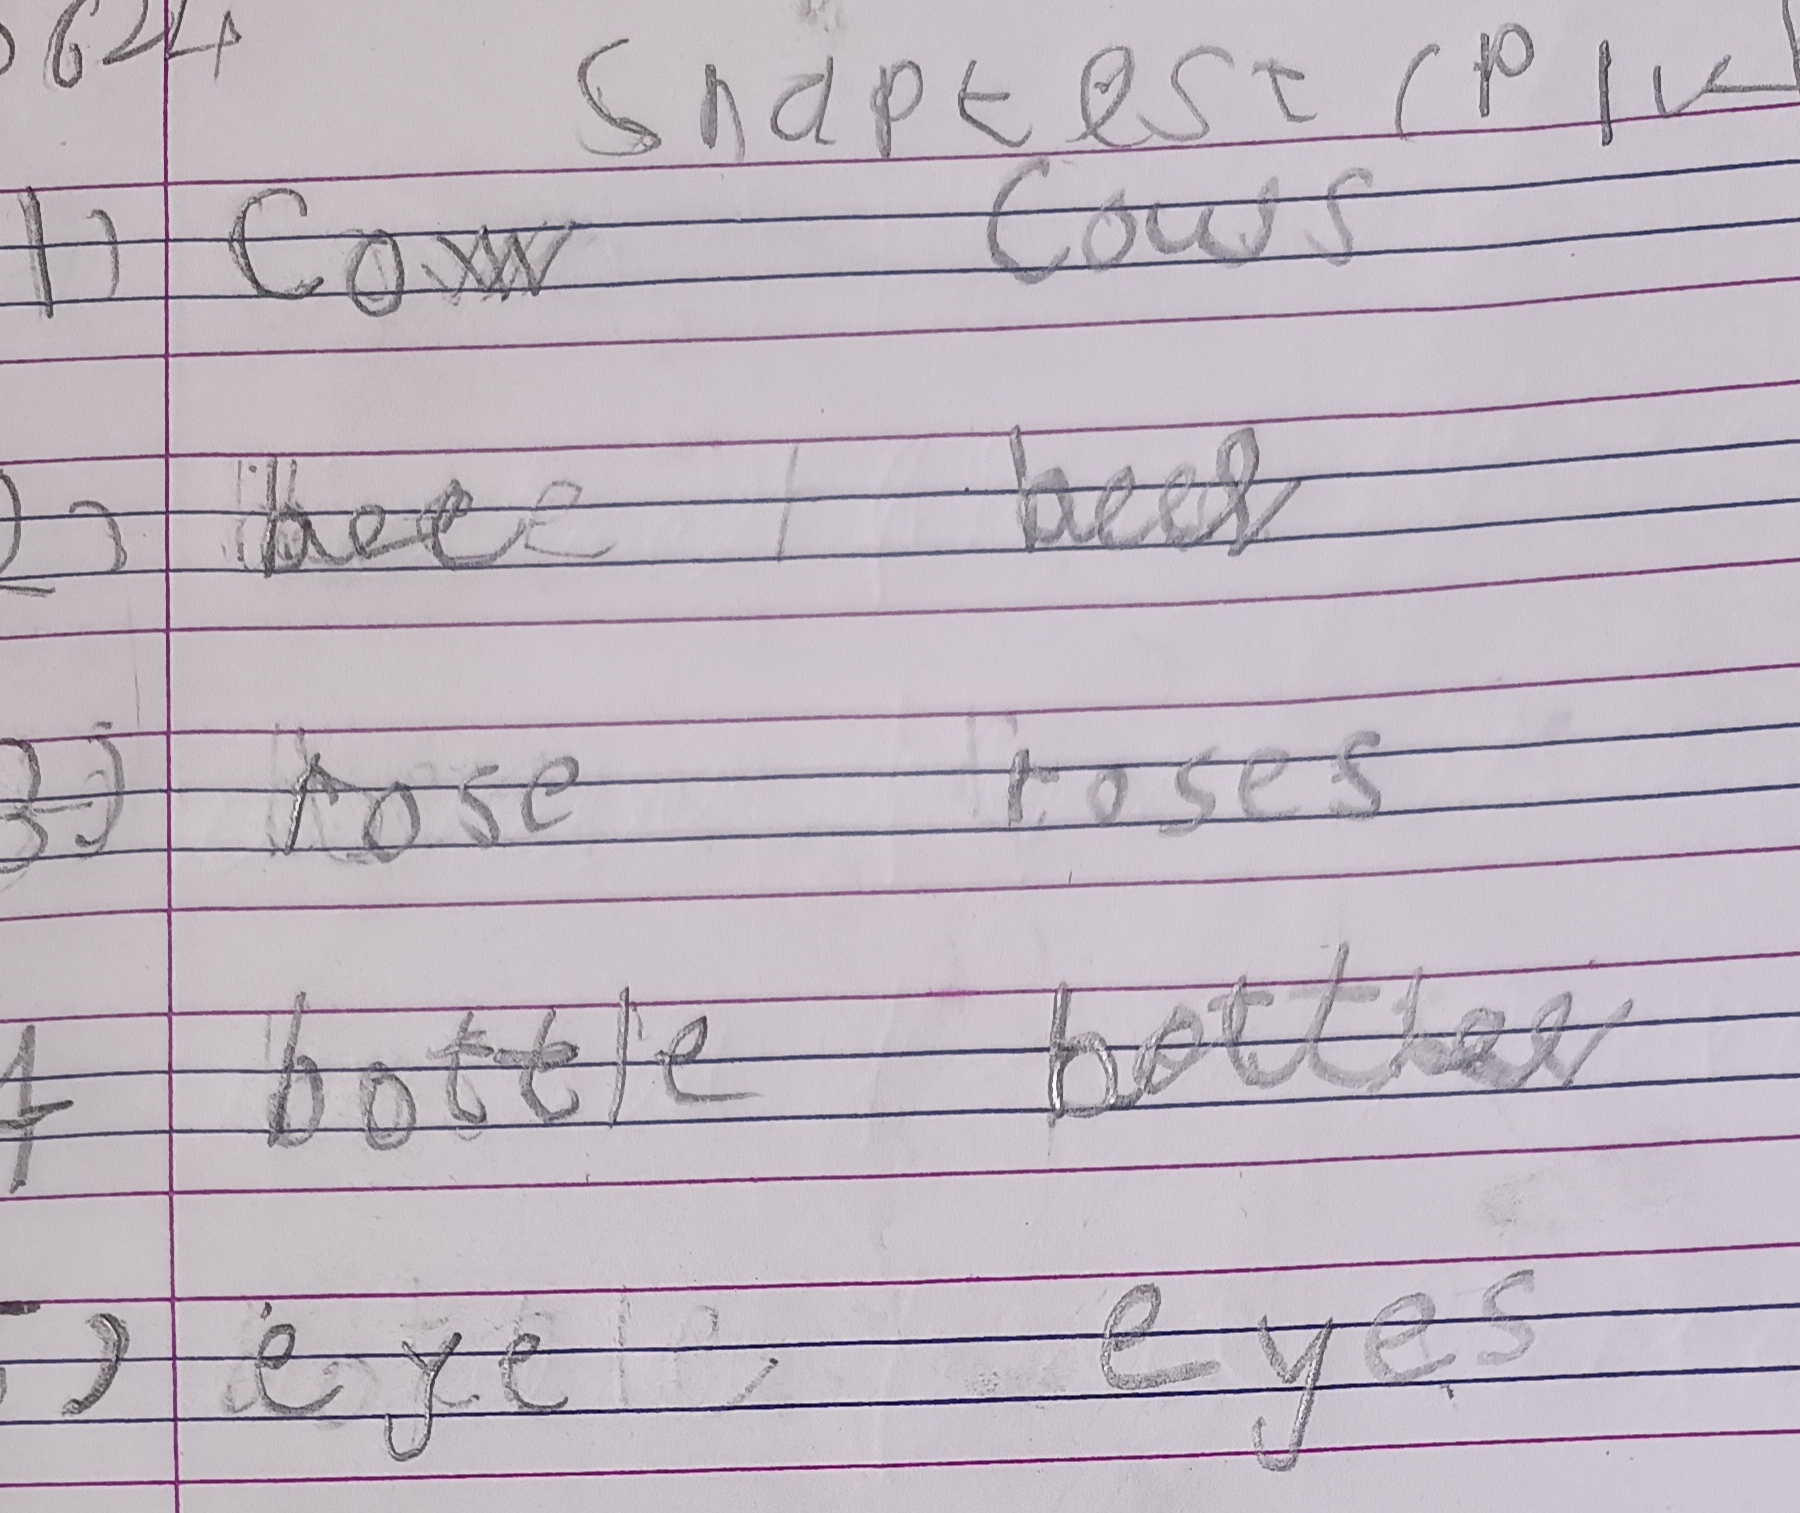 624
Snaptest (Plu
1) Cow Cows
2) bee bees
3) rose roses
4 bottle
5) eye eyes